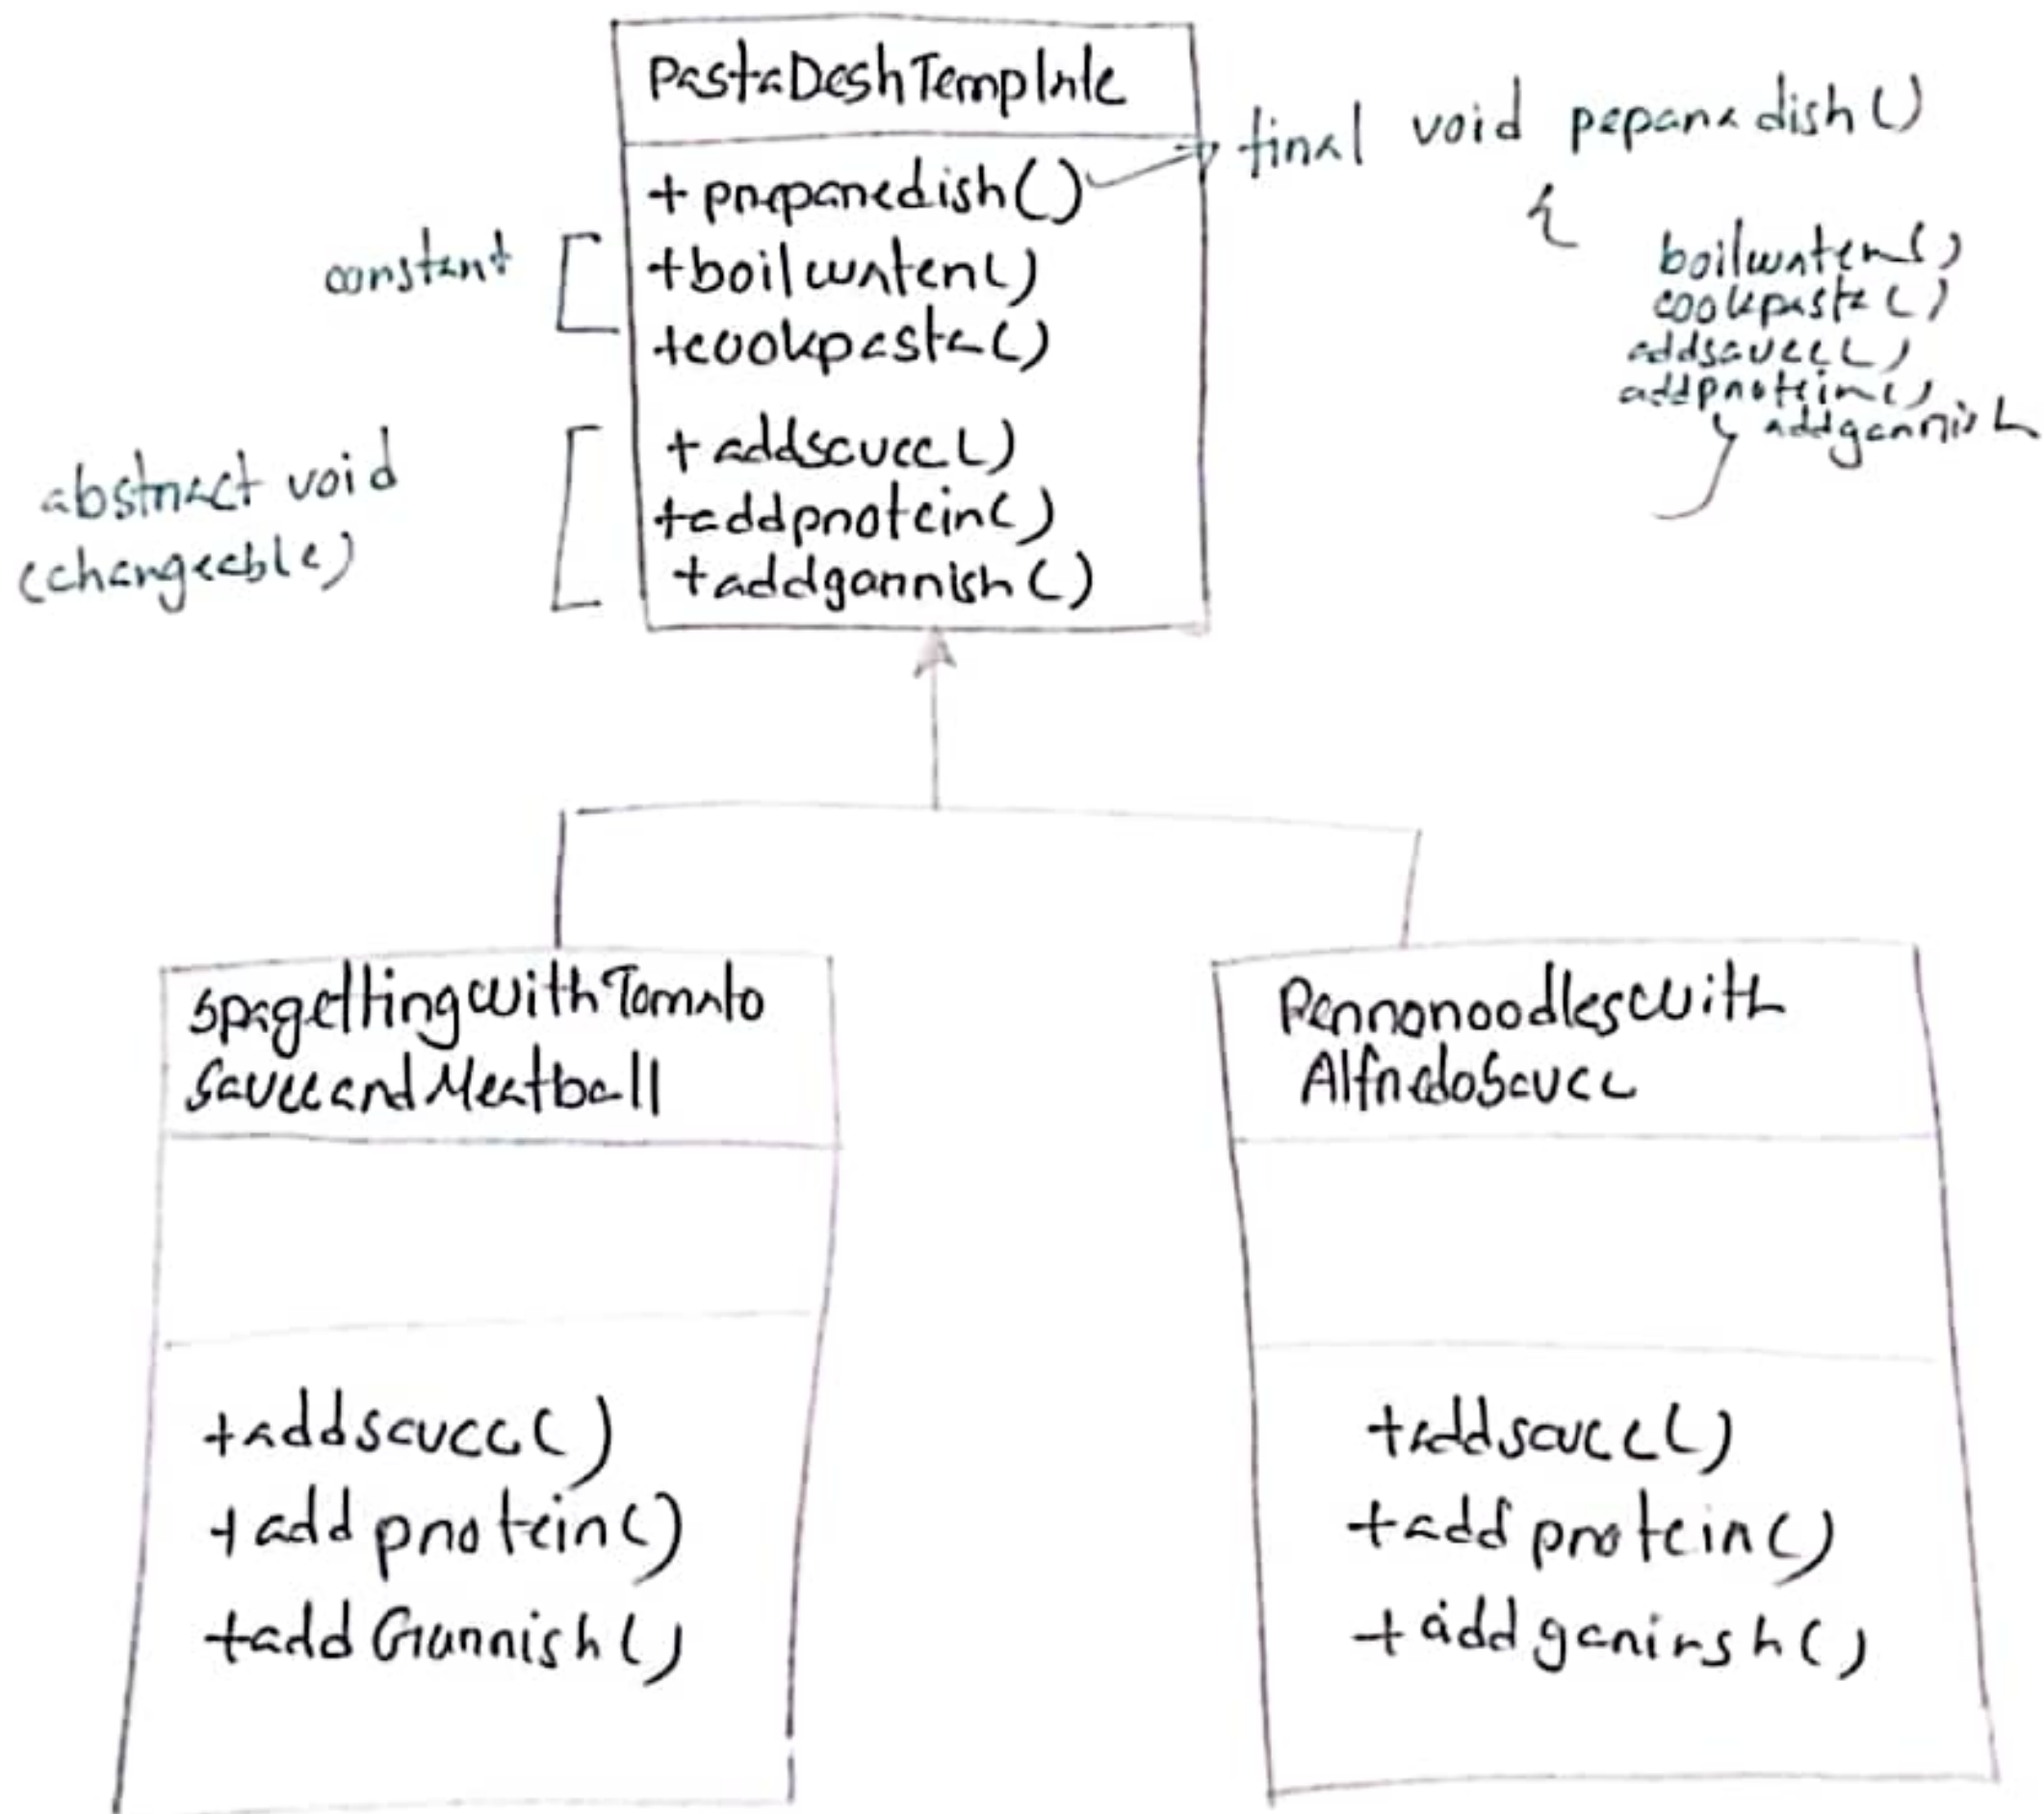 PastaDeshTemplate
+ preparedish()
+boilwater()
+cookpasta()
+ addsauce()
+addprotein()
+addgarnish()
constant
abstract void
(changeable)
final void pepara dish()
{
boilwater()
cookpasta()
addsauce()
addprotein()
addgarnish
}
SpagettingwithTomato
SauceandMeatball
+addsauce()
+add protein()
+add Garnish()
Pennonoodleswith
AlfredoSauce
+addsauce()
+add protein()
+add ganirsh()